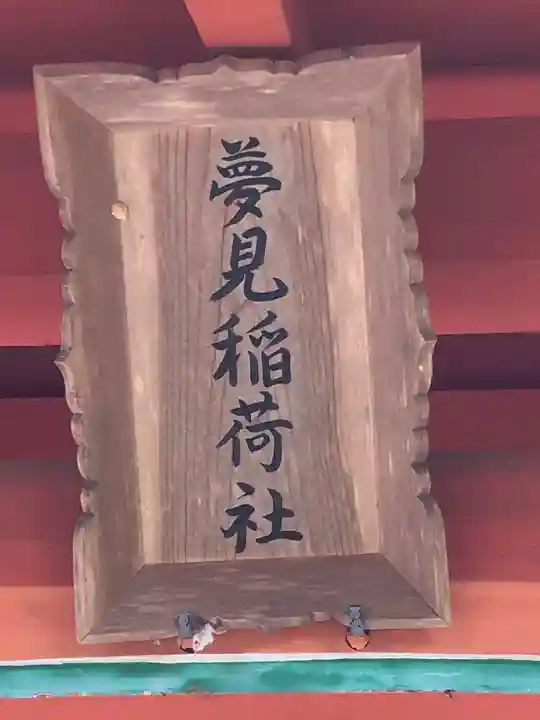 夢見稲荷社